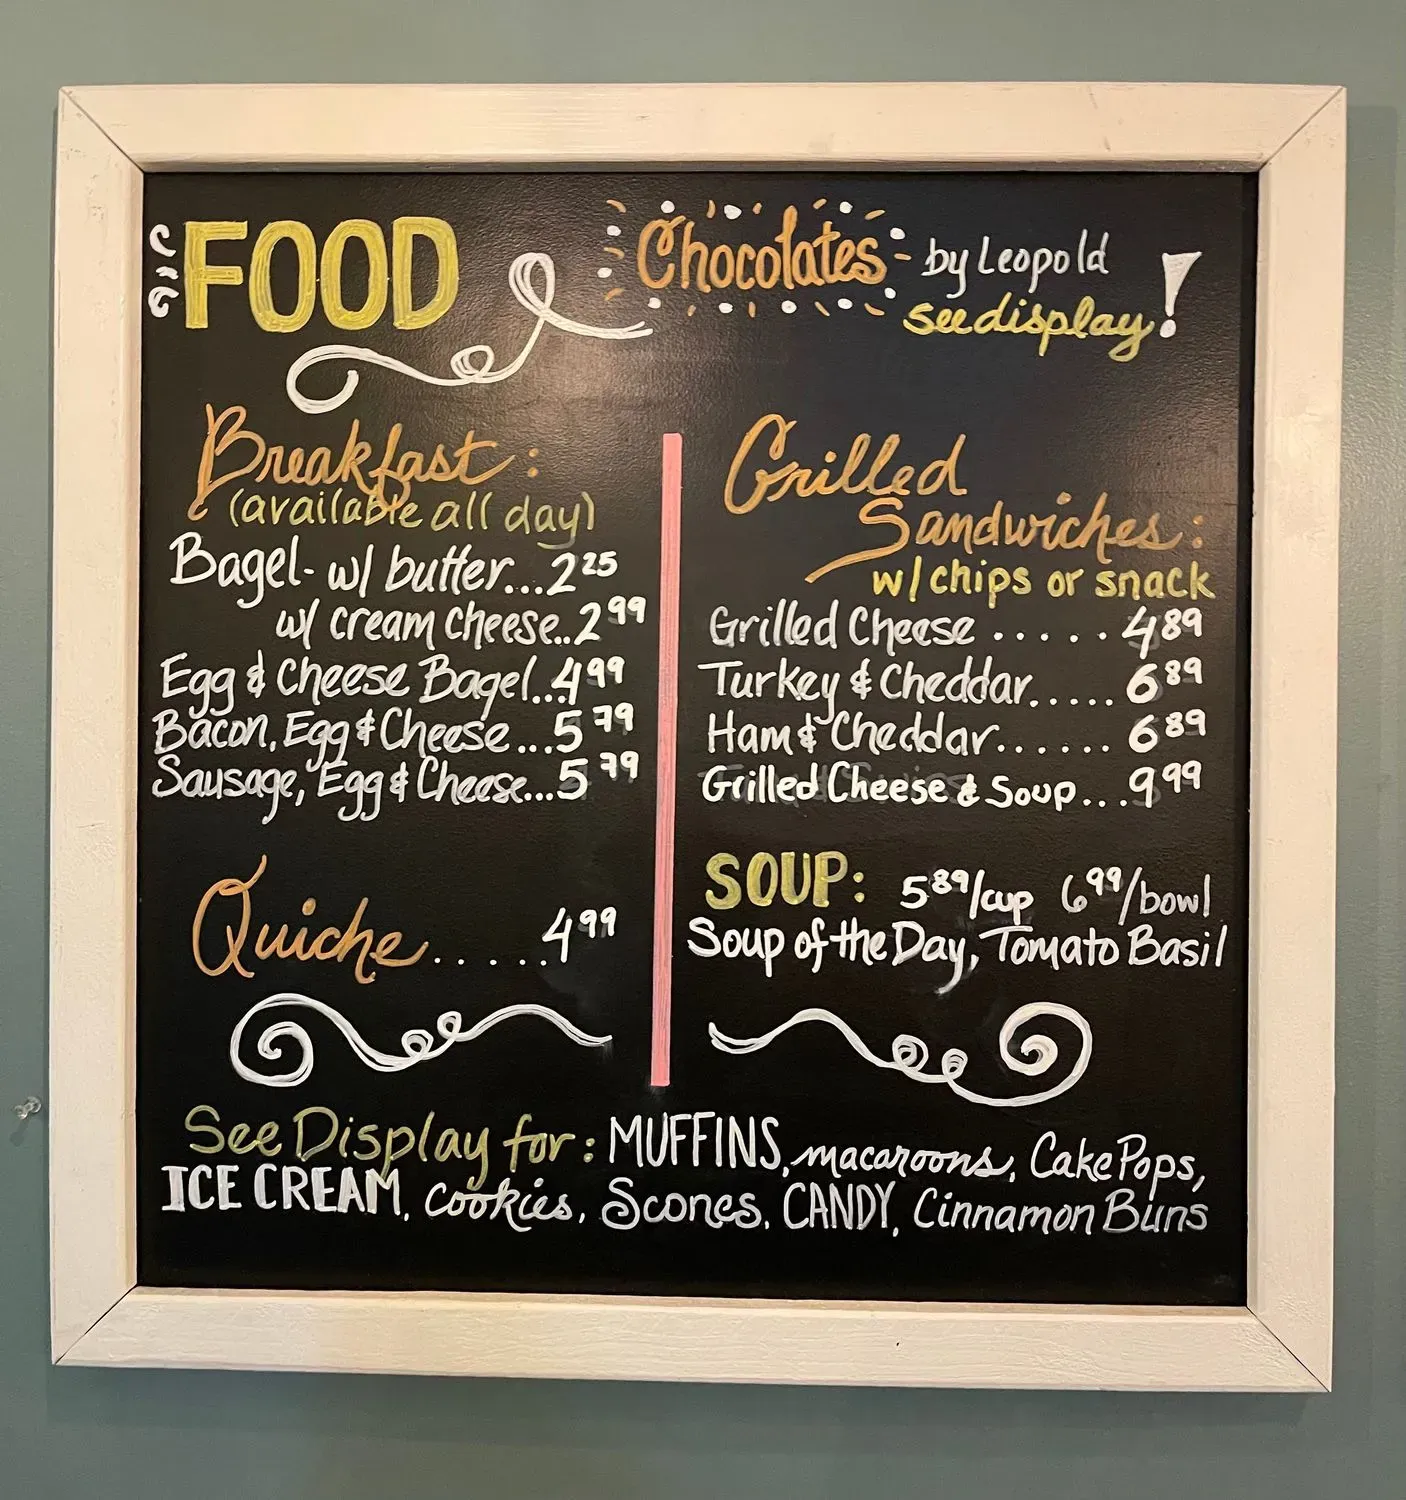 FOOD
Chocolates by Leopold
see display!
Breakfast:
(available all day)
Bagel- w/ butter...2 25
w/ cream cheese..2 99
Egg & Cheese Bagel...4 99
Bacon, Egg & Cheese...5 79
Sausage, Egg & Cheese...5 79
Quiche......4 99
Grilled
Sandwiches:
w/ chips or snack
Grilled Cheese.....4 89
Turkey & Cheddar.....6 89
Ham & Cheddar......6 89
Grilled Cheese & Soup...9 99
SOUP: 5 89/cup 6 99/bowl
Soup of the Day, Tomato Basil
See Display for: MUFFINS, macaroons, Cake Pops,
ICE CREAM, Cookies, Scones, CANDY, Cinnamon Buns